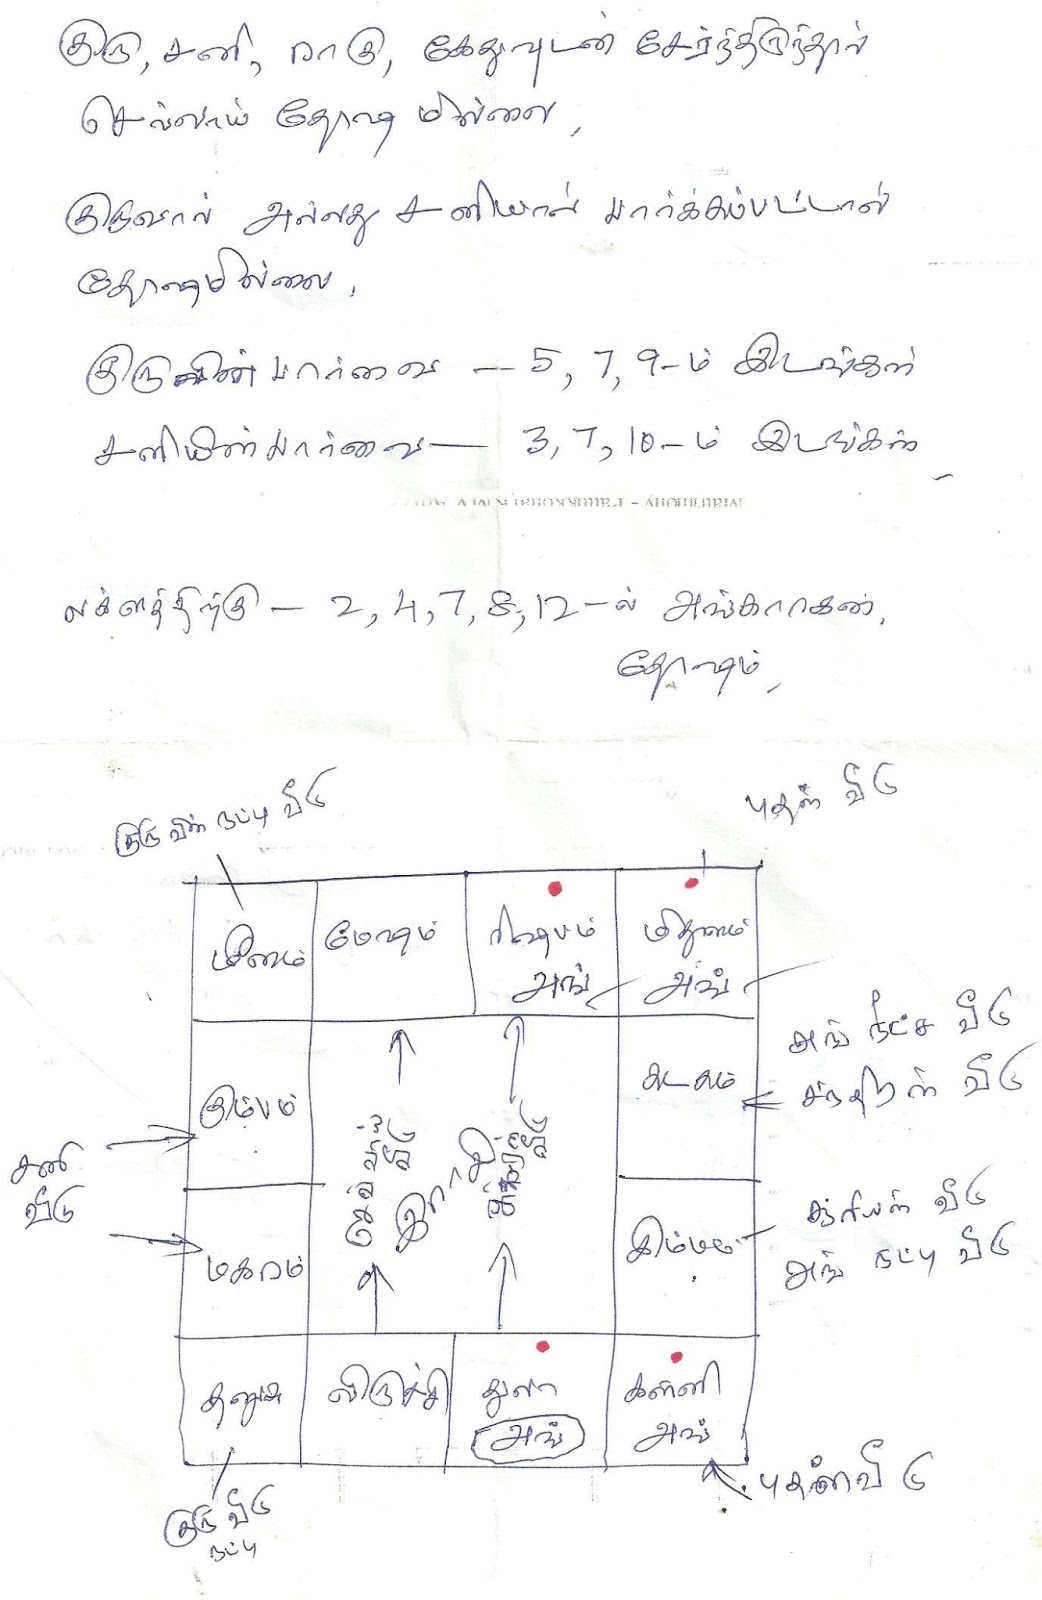 குரு, சனி, ராகு, கேதுவுடன் சேர்ந்திருந்தால்
செவ்வாய் தோஷமில்லை,
குருவால் அல்லது சனியால் பார்க்கப்பட்டால்
தோஷமில்லை,
குருவின் பார்வை — 5, 7, 9-ம் இடங்கள்
சனியின் பார்வை — 3, 7, 10-ம் இடங்கள்
லக்னத்திற்கு — 2, 4, 7, 8, 12-ல் அங்காரகன்,
தோஷம்,
குருவின் நட்பு வீடு
புதன் வீடு
மீனம்
மேஷம்
ரிஷபம்
அங்
மிதுனம்
அங்
கும்பம்
கடகம்
அங் நீட்ச வீடு
சந்திரன் வீடு
சனி
வீடு
இராசி
மகரம்
சிம்மம்
சூரியன் வீடு
அங் நட்பு வீடு
தனுசு
விருச்சி
துலா
அங்
கன்னி
அங்
குரு வீடு
நட்பு
புதன் வீடு